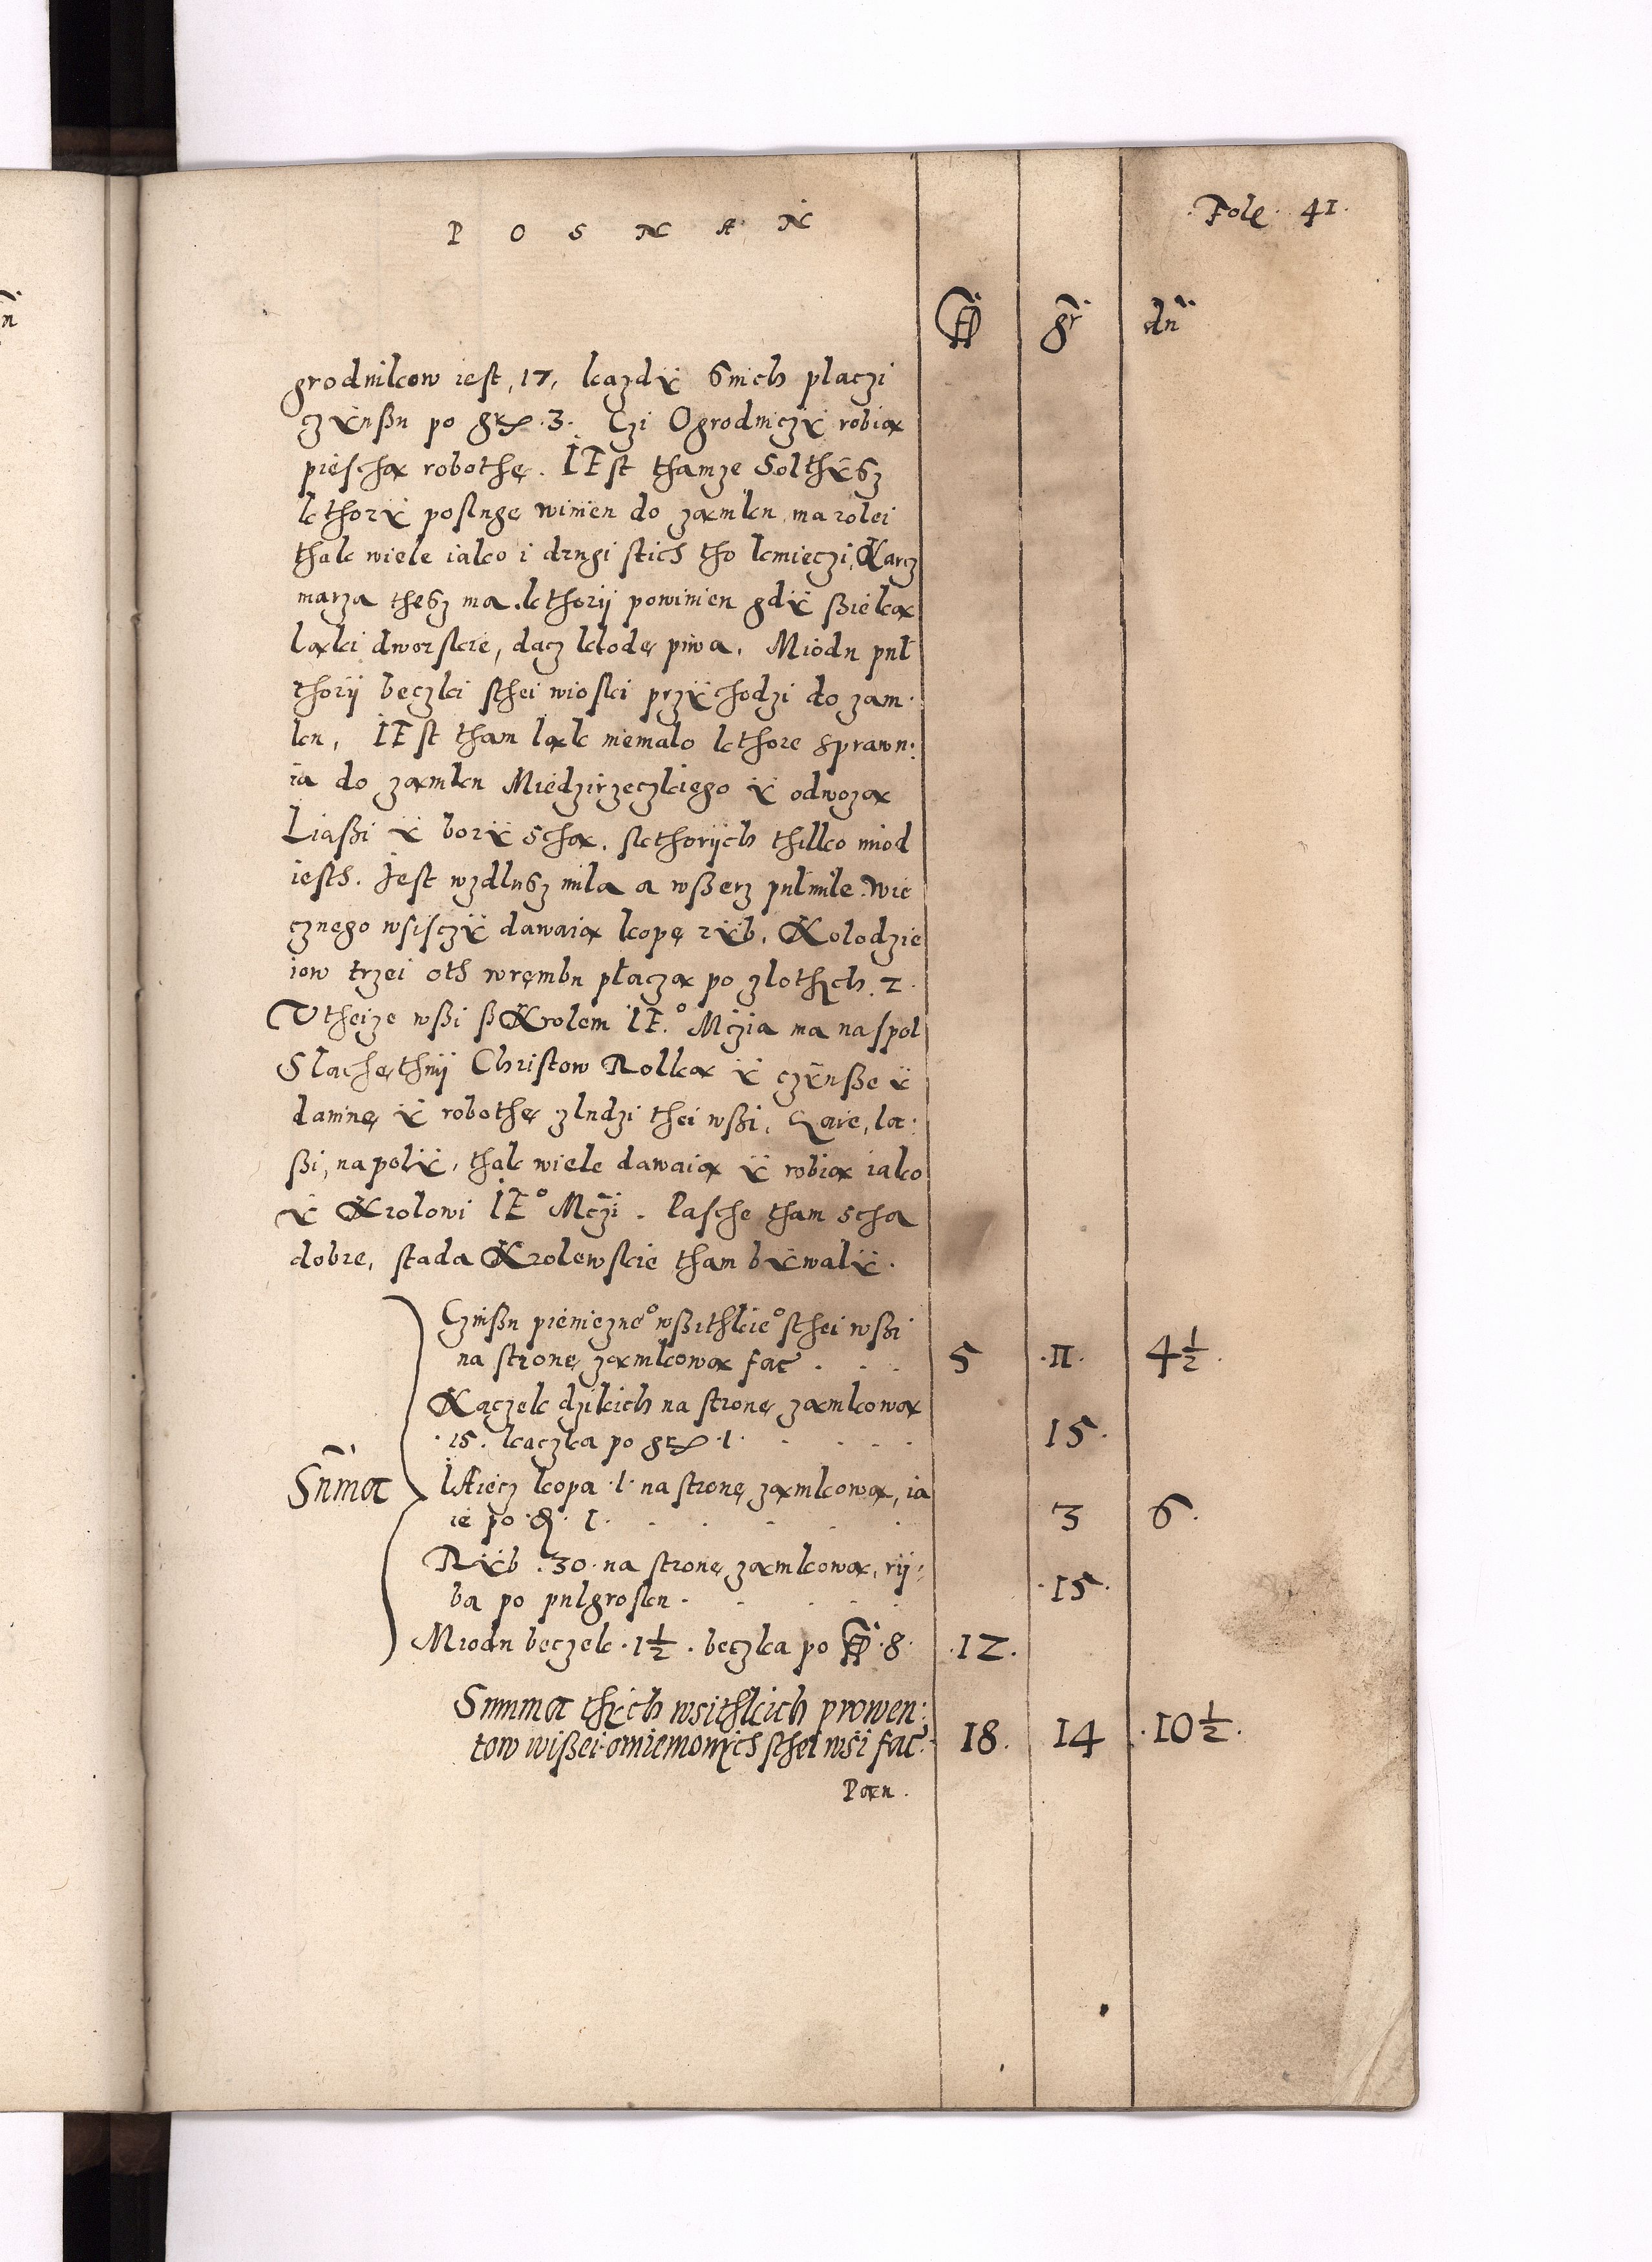 P O S N A Ń
Fole 41.
fl gr dn
grodnikow iest, 17, kazdÿ snich placzi
czÿnßu po grß .3. Czi Ogrodniczÿ robią
piescha robothę. IEst thamze Solthÿsz
kthorÿ poslugę winien do zamku, ma rolei
thak wiele iako i drugi stich tho kmieczi, Karcz
marza thesz ma. kthorij powinien gdÿ ßieką
ląki dworskie, dacz klodę piwa. Miodu puł
thorij beczki sthei wioski przÿchodzi do zam:
ku, IEst tham ląk niemalo kthore sprawu:
ia do zamku Miedzirzeczkiego ÿ odwozą
Liaßi ÿ borÿ schą. skthorijch thilko miod
iesth. Jest wzdlusz mila a wßerz pułmile. Wie
cznego wsisczÿ dawaią kopę rÿb. Kolodzie
iow trzei oth wrębu płaczą po zlothÿch .2.
W theize wßi ß Krolem IE.º Mczią ma naspol
Slachęthnij Christow Rolka ÿ czÿnße ÿ
daninę ÿ robothę zludzi thei wßi, Gaie, la:
ßi, na polÿ, thak wiele dawaią ÿ robią iako
ÿ Krolowi IEº Mczi. Pasche tham scha
dobre, stada Krolewskie tham bÿwalÿ.
Czinßu pienieznº wßithkiº sthei wßi
na stronę zamkową fac . . . 5 .11. 4½.
Kaczek dzikich na stronę zamkową
.15. kaczka po grß .1. . . . . 15.
Sum̃a IAiecz kopa .1. na stronę zamkową, ia
ie po d. 1. . . . . . 3 6.
Rÿb .30. na stronę zamkową, rij:
ba po pulgrosku . . . . . .15.
Miodu beczek .1½. beczka po fl .8. .12.
Summa thÿch wsithkich prowen:
tow wißei omienionÿch sthei wsi fac. 18. 14 .10½.
Pan.